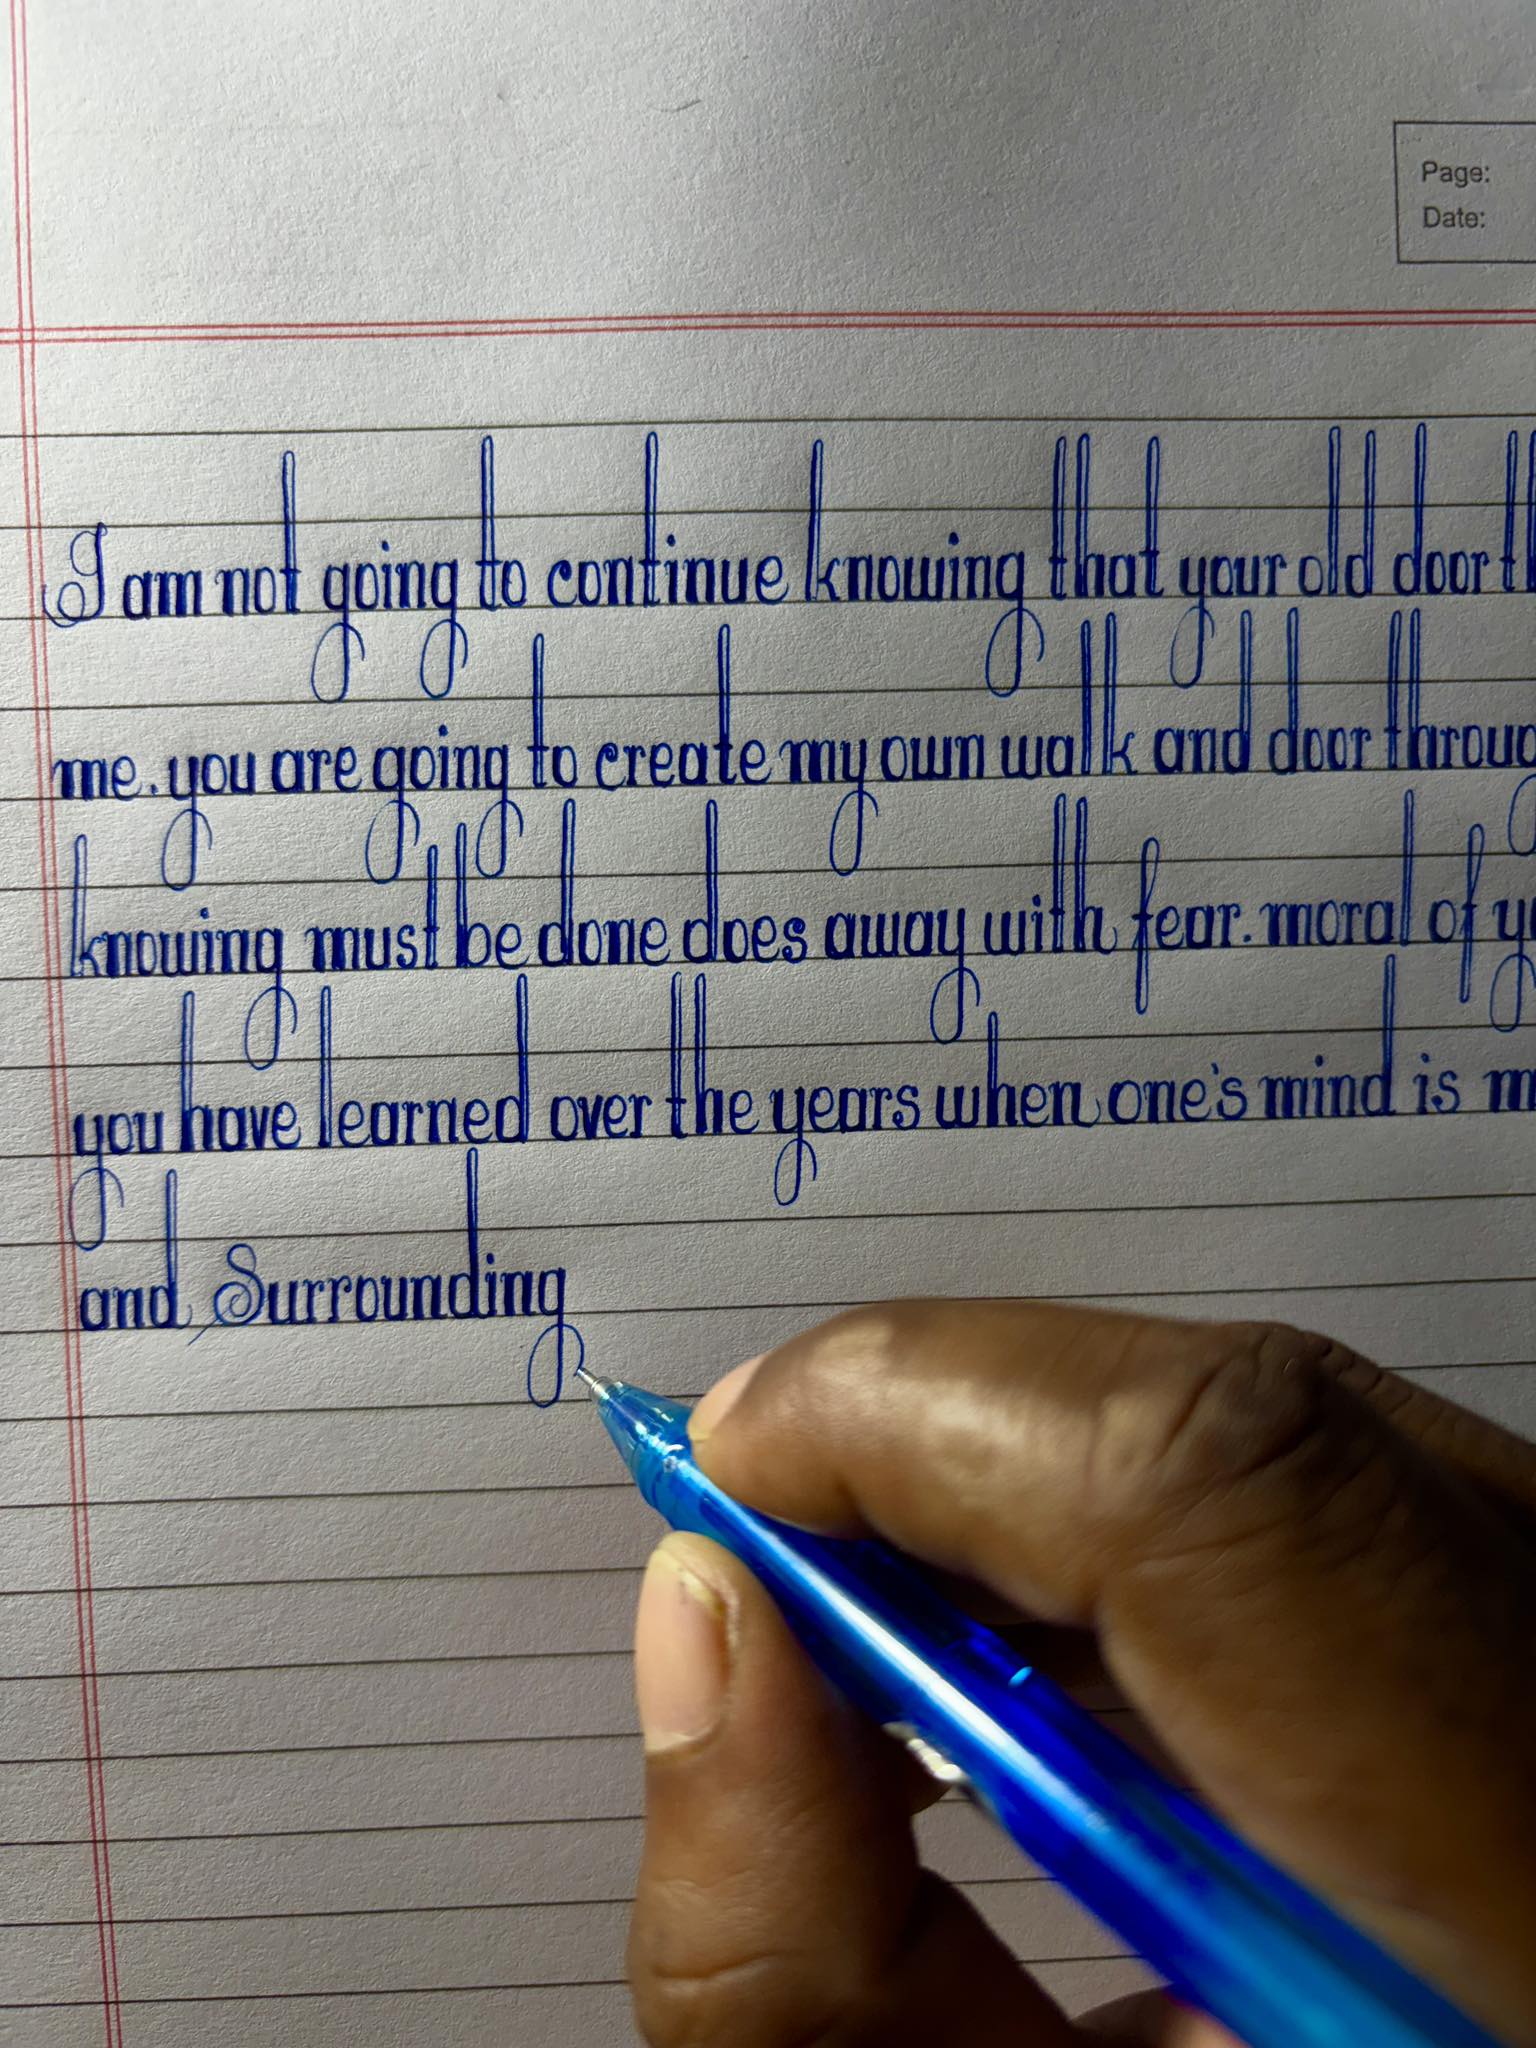 Page:
Date:
I am not going to continue knowing that your old door
me. you are going to create my own walk and door
knowing must be done does away with fear. moral of
you have learned over the years when one's mind is
and Surrounding